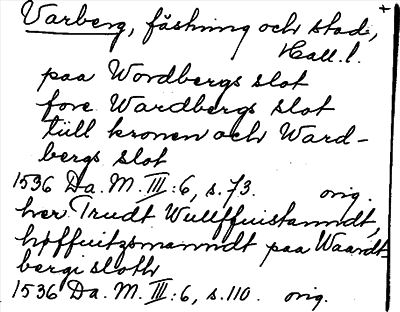 Varberg, fästning och stad,
Hall. l.
paa Wordbergs slot
fore Wardbergs slot
tiill kronen och Ward-
bergs slot
1536 Da. M. III:6, s. 73. orig.
her Trudt Wullffuistanndt,
høffuitzmanndt paa Waardt-
bergi sloth
1536 Da. M. III:6, s. 110. orig.